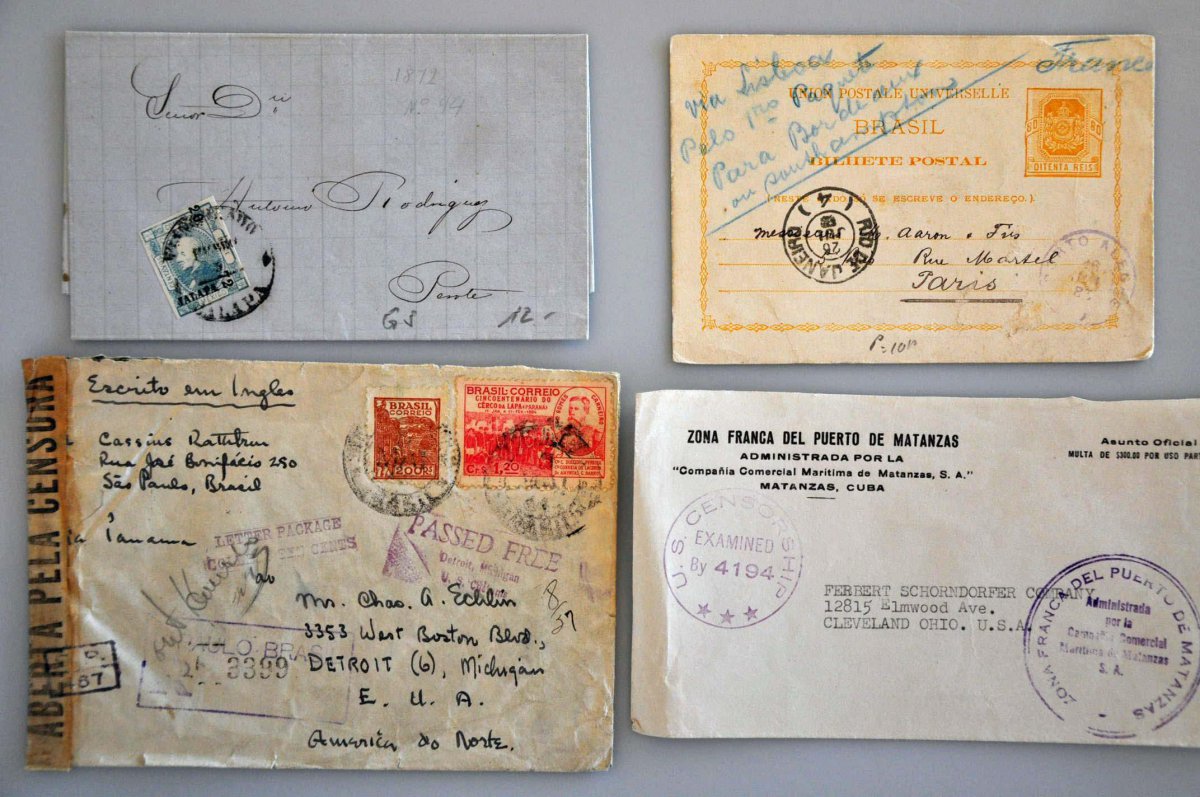 1872
Nº 94
Señor Dn
Antonio Rodriguez
Perote
GS
12.-
FRANQUEADO
JALAPA
JALAPA
via Lisboa
Pelo pro Paquete
Para Bordeaux
ou Southampton
France
UNION POSTALE UNIVERSELLE
BRASIL
BILHETE POSTAL
80 80
OITENTA REIS
(NESTE LADO SÓ SE ESCREVE O ENDEREÇO.)
RIO DE JANEIRO
(4)
26
JUL
Aaron
Rue Martel
Paris
ABERTA PELA CENSURA
Escrito em Ingles
Cassius
Rua José Bonifácio 250
São Paulo, Brasil
Panama
BRASIL
CORREIO
200 RS
BRASIL CORREIO
CINCOENTENARIO DO
CERCO DA LAPA (PARANÁ)
CARNEIRO
Cr$ 1,20
LETTER PACKAGE
PASSED FREE
Detroit, Michigan
U. S. Customs
8/37
ao
Mr. Chas. A. Echlin
3353 West Boston Blvd.,
DETROIT (6), Michigan
E. U. A.
America do Norte.
PAULO-BRASIL
3399
87
ZONA FRANCA DEL PUERTO DE MATANZAS
ADMINISTRADA POR LA
"Compañia Comercial Maritima de Matanzas, S. A."
MATANZAS, CUBA
Asunto Oficial
MULTA DE $300.00 POR USO PART
U. S. CENSORSHIP
EXAMINED
By 4194
FERBERT SCHORNDORFER COMPANY
12815 Elmwood Ave.
CLEVELAND OHIO. U.S.A.
ZONA FRANCA DEL PUERTO DE MATANZAS
Administrada
por la
Compañia Comercial
Maritima de Matanzas
S. A.